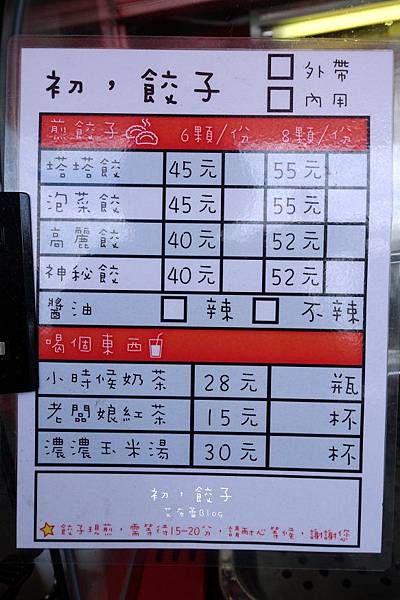 初，餃子 □ 外帶
□ 內用
煎餃子 6顆/份 8顆/份
塔塔餃 45元 55元
泡菜餃 45元 55元
高麗餃 40元 52元
神秘餃 40元 52元
醬油 □ 辣 □ 不辣
喝個東西
小時候奶茶 28元 瓶
老闆娘紅茶 15元 杯
濃濃玉米湯 30元 杯
初，餃子
Blog
餃子現煎，需等待15-20分，請耐心等候，謝謝您